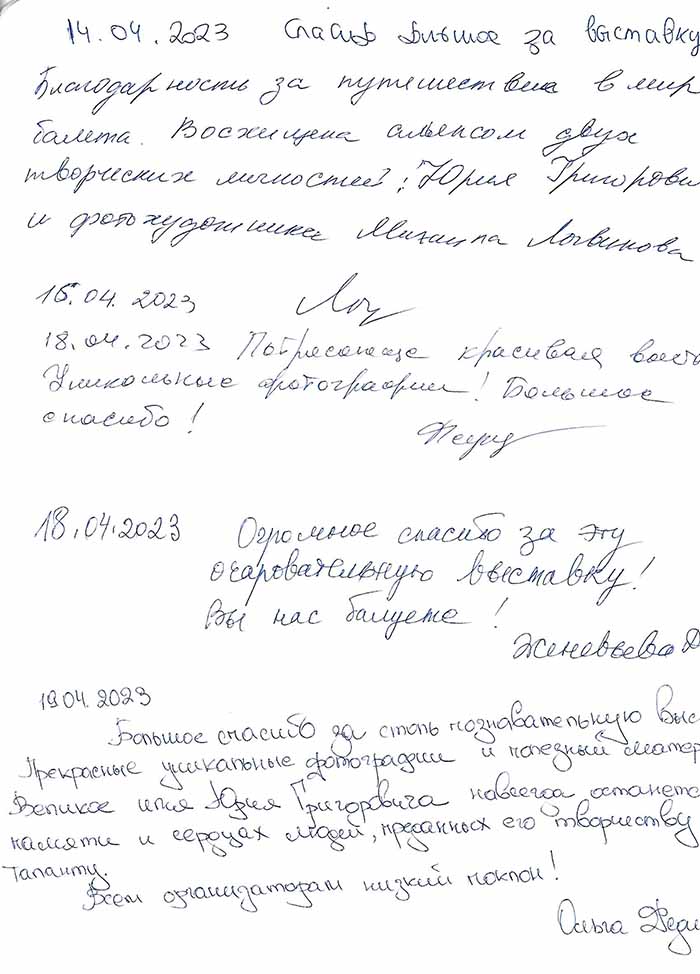 14.04.2023 Спасибо большое за выставку
Благодарность за путешествие в мир
балета. Восхищена альянсом двух
творческих личностей: Юрия Григорови
и фотохудожника Михаила Логвинова
16.04. 2023
18.04.2023 Потрясающе красивая выст
Уникальные фотографии! Большое
спасибо!
18.04.2023 Огромное спасибо за эту
очаровательную выставку!
Вы нас балуете!
Женевьева
19.04.2023
Большое спасибо за столь познавательную Выс
Прекрасные уникальные фотографии и полезный матер
Великое имя Юрия Григоровича навсегда останетс
памяти и сердцах людей, преданных его творчеству
таланту.
Всем организаторам низкий поклон!
Ольга